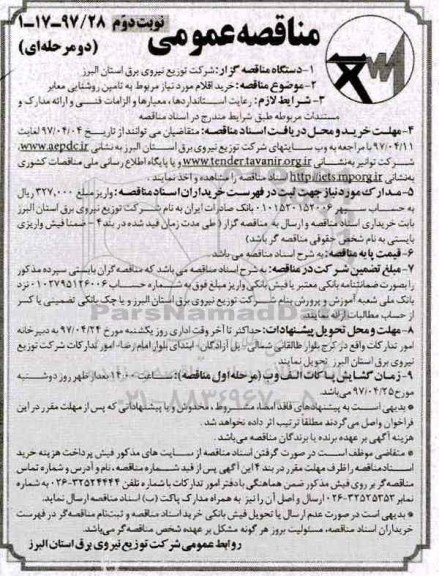 نوبت دوم ۹۷/۲۸-۱۷-۱
مناقصه عمومی
(دو مرحله‌ای)
۱-دستگاه مناقصه گزار: شرکت توزیع نیروی برق استان البرز
۲-موضوع مناقصه: خرید اقلام مورد نیاز مربوط به تامین روشنایی معابر
۳- شرایط لازم: رعایت استانداردها، معیارها و الزامات فنی و ارائه مدارک و
مستندات مربوطه طبق شرایط مندرج در اسناد مناقصه
۴-مهلت خرید و محل دریافت اسناد مناقصه: متقاضیان می توانند از تاریخ ۹۷/۰۴/۰۴ لغایت
۹۷/۰۴/۱۱ با مراجعه به وب سایتهای شرکت توزیع نیروی برق استان البرز به نشانی www.aepdc.ir،
شرکت توانیر به‌نشانی www.tender.tavanir.org.ir و یا پایگاه اطلاع رسانی ملی مناقصات کشوری
به‌نشانی http://iets.mporg.ir اسناد مناقصه را مشاهده و اخذ نمایند.
۵-مدارک مورد نیاز جهت ثبت در فهرست خریداران اسناد مناقصه: واریز مبلغ ۳۲۷,۰۰۰ ریال
به حساب سپهر ۰۱۰۱۵۳۰۱۵۲۰۰۶ بانک صادرات ایران به نام شرکت توزیع نیروی برق استان البرز
بابت خریداری اسناد مناقصه و ارسال به مناقصه گزار (طی مدت زمان قید شده در بند ۴ - ضمنا فیش واریزی
بایستی به نام شخص حقوقی مناقصه گر باشد)
۶- قیمت پایه مناقصه: به شرح اسناد مناقصه می باشد.
۷-مبلغ تضمین شرکت در مناقصه: به شرح اسناد مناقصه می باشد که مناقصه گران بایستی سپرده مذکور
را بصورت ضمانتنامه بانکی معتبر یا فیش بانکی واریز مبلغ فوق به شماره حساب ۰۱۰۲۷۹۵۱۲۶۰۰۶ نزد
بانک ملی شعبه آموزش و پرورش بنام شرکت توزیع نیروی برق استان البرز و یا چک بانکی تضمینی یا کسر
از حساب مطالبات ارائه نمایند.
۸-مهلت و محل تحویل پیشنهادات: حداکثر تا آخر وقت اداری روز یکشنبه مورخ ۹۷/۰۴/۲۴ به دبیرخانه
امور تدارکات واقع در کرج بلوار طالقانی شمالی- پل آزادگان- ابتدای بلوار امام رضا- امور تدارکات شرکت توزیع
نیروی برق استان البرز تحویل نمایند.
۹-زمان گشایش پاکات الف و ب (مرحله اول مناقصه): ساعت ۱۴:۰۰ بعداز ظهر روز دوشنبه
مورخ ۹۷/۰۴/۲۵ می باشد.
* بدیهی است به پیشنهادهای فاقد امضا، مشروط، مخدوش و یا پیشنهاداتی که پس از مهلت مقرر در این
فراخوان واصل می‌گردند مطلقا ترتیب اثر داده نخواهد شد.
هزینه آگهی بر عهده برنده یا برندگان مناقصه می‌باشد.
* متقاضی موظف است در صورت گرفتن اسناد مناقصه از سایت های مذکور فیش پرداخت هزینه خرید
اسناد مناقصه را ظرف مهلت مقرر در بند ۴ این آگهی پس از قید شماره مناقصه، نام و آدرس و شماره تماس
مناقصه گر بر روی فیش مذکور ضمن هماهنگی با دفتر امور تدارکات با شماره تلفن ۳۲۵۲۴۴۴۴-۰۲۶ به شماره
نمابر ۳۲۵۲۵۳۵۲-۰۲۶ ارسال و اصل آن را نیز به همراه مدارک پاکت (ب) اسناد مناقصه ارسال نماید.
* بدیهی است در صورت عدم ارسال یا تحویل فیش بانکی خرید اسناد مناقصه و ثبت‌نام مناقصه‌گر در فهرست
خریداران اسناد مناقصه، مسئولیت بروز هر گونه مشکل بر عهده شخص مناقصه گر می‌باشد.
روابط عمومی شرکت توزیع نیروی برق استان البرز
ParsNamadData
۰۲۱-۸۸۳۴۹۶۷۰-۵